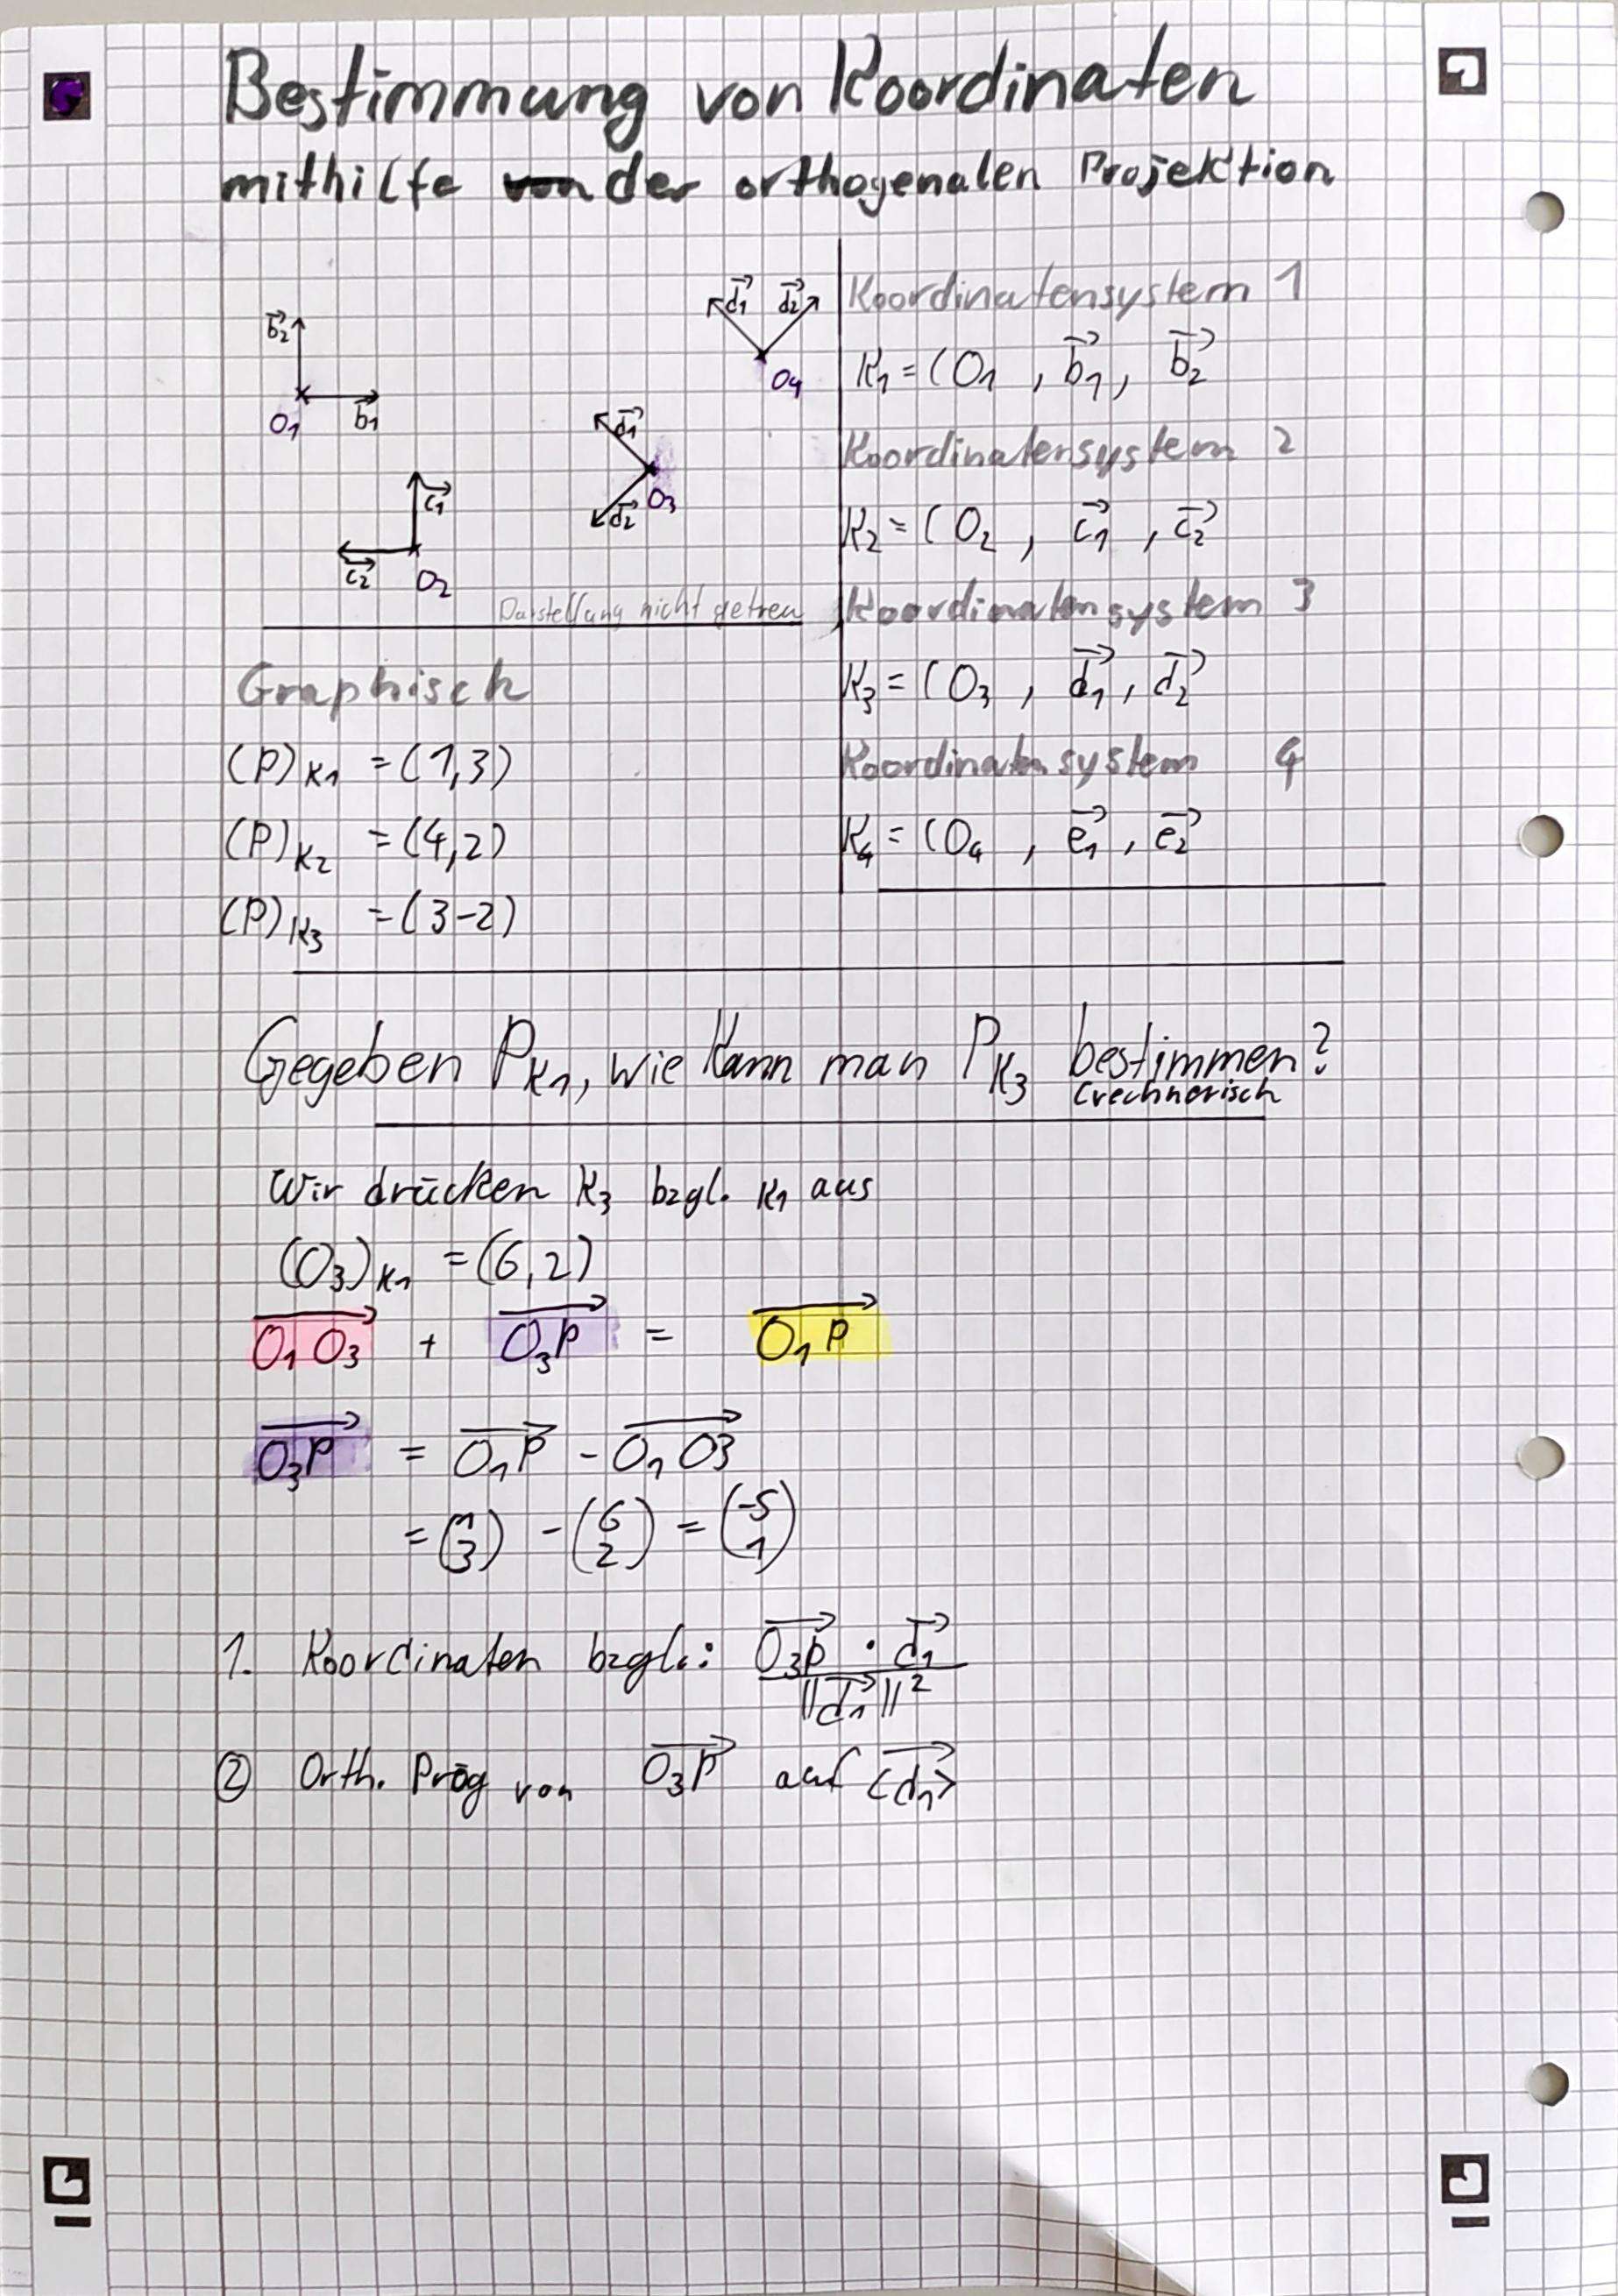 Bestimmung von Koordinaten
mithilfe von der orthogenalen Projektion
b⃗2
O1
b⃗1
c⃗1
c⃗2
O2
d⃗1
d⃗2
O3
d⃗1 d⃗2
O4
Darstellung nicht getreu
Koordinatensystem 1
K1 = (O1 , b⃗1, b⃗2
Koordinatensystem 2
K2 = (O2 , c⃗1 , c⃗2
Koordinatensystem 3
K3 = (O3 , d⃗1 , d⃗2
Koordinatensystem 4
K4 = (O4 , e⃗1 , e⃗2
Graphisch
(P)K1 = (1,3)
(P)K2 = (4,2)
(P)K3 = (3-2)
Gegeben PK1, wie kann man PK3 bestimmen?
(rechnerisch
Wir drücken K3 bzgl. K1 aus
(O3)K1 = (6,2)
→O1O3 + →O3P = →O1P
→O3P = →O1P - →O1O3
= (1 3) - (6 2) = (-5 1)
1. Koordinaten bzgl.: →O3P · d⃗1 / ||d⃗1||²
② Orth. Prog von →O3P auf <d⃗1>